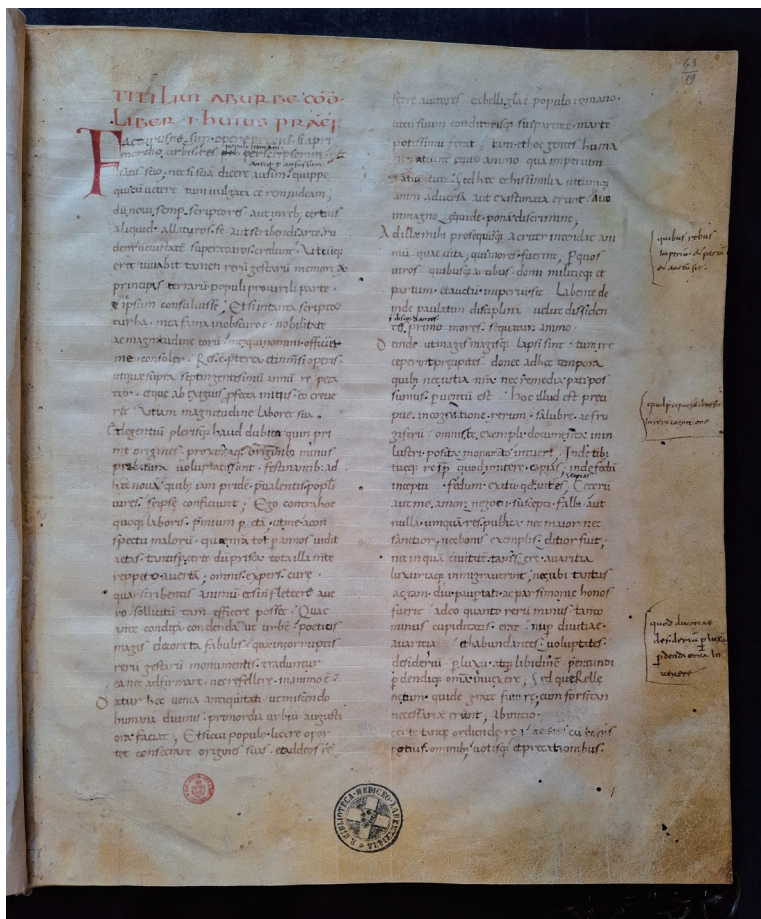 TITI LIVI AB URBE COÑ
LIBER I HUIUS PRAEF
Facturusne sim operepretiū si a pri
mordio urbis res
populi romani
perscripserim
satis scio nec si sciā dicere ausim quippe
qui cū vetere tum vulgatā eē rem videam
dū novi semp scriptores aut in reb certius
aliquid allaturos se aut scribendi arte ru
dem vetustatē superaturos credunt Utcūq
erit iuvabit tamen rerū gestarū memoriae
principis terrarū populi pro virili parte
et ipsum consuluisse Et si in tanta scriptorū
turba mea fama in obscuro nobilitate
ac magnitudine eorū meo qui nomini officient
me consoler Res ē pterea et inmensi operis
utquae supra septingentesimū annū repeta
tur et quae ab exiguis pfecta initiis eo creve
rit ut iam magnitudine laboret sua
Et legentiū plerisq haud dubito quin pri
me origines proximaq originib minus
prebitura voluptatis sint festinantib ad
haec nova quib iam pridē pvalentis popli
vires seipse conficiunt Ego contra hoc
quoq laboris pmium petā ut me a con
spectu malorū quae nra tot p annos vidit
aetas tantisp certe dū prisca tota illa mte
repeto avertā omnis expers cure
quae scribentis animū etsi n flectere a ve
ro sollicitū tam efficere posset Quae
ante conditā condendāve urbē poeticis
magis decora fabulis quā incorruptis
rerū gestarū monumentis traduntur
ea nec adfirmare nec refellere in animo ē
Datur haec venia antiquitati ut miscendo
humana divinis primordia urbiū augusti
ora faciat Et si cui populo licere opor
tet consecrare origines suas et ad deos re
ferre auctores ea belli gla ē populo romano
ut cū suum conditorisq sui parentē marte
potissimū ferat tam et hoc gentes huma
ne patiantur equo animo quā imperium
patiuntur Sed haec et his similia utcumq
anim adversa aut existimata erunt haud
in magno equidē ponā discrimine
Ad illa mihi p se quisq acriter intendat ani
mū quae vita qui mores fuerint p quos
viros quibusq artibus domi militieq et
partum et auctū imperiū sit Labente de
inde paulatim disciplina velut dissiden
tis primo mores sequatur animo
Deinde ut magis magisq lapsi sint tum ire
ceperint precipites donec ad haec tempora
quib nec vitia nra nec remedia pati pos
sumus pventū est Hoc illud est preci
pue in cognitione rerum salubre ac fru
giferū omnis te exempli documta in in
lustri posita monumto intueri Inde tibi
tueq rei p quod imitere capias inde foedū
inceptu foedum exitu qd vites Ceterū
aut me amor negoti suscepti fallit aut
nulla umquā res publica nec maior nec
sanctior nec bonis exemplis ditior fuit
nec in quā civitatē tā serae avaritia
luxuriaq inmigraverint nec ubi tantus
ac tam diu paupertati ac parsimonie honos
fuerit adeo quanto rerū minus tanto
minus cupiditatis erat nup divitiae
avaritiā et abundantes voluptates
desideriū p luxū atq libidinē pereundi
pdendiq omnia invexere Sed querelle
ne tum quidē grate future cum forsitan
necessarie erunt ab initio
certe tante ordiende rei absint cū bonis
potius ominib votisq et precationibus
quibus rebus
imperiū et partū
et auctū sit
quid pcipue salubre sit
in rerū cognitione
quod divitiae
desideriū p luxū
pdendi omnia in
vexere
63
19
R. BIBLIOTECA MEDICEO LAURENZIANA